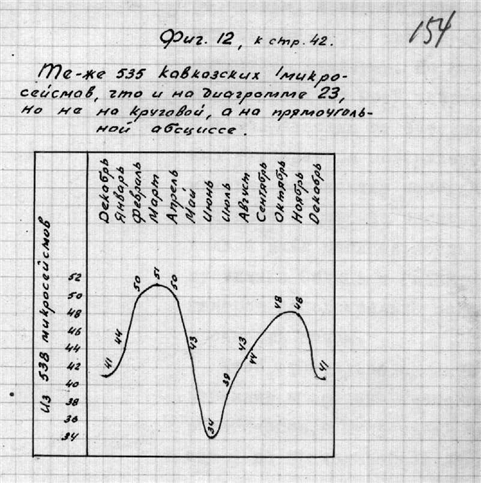 154
Фиг. 12, к стр. 42.
Те-же 535 кавказских микро-
сейсмов, что и на Диаграмме 23,
но не на круговой, а на прямоуголь-
ной абсциссе.
Декабрь
Январь
Февраль
Март
Апрель
Май
Июнь
Июль
Август
Сентябрь
Октябрь
Ноябрь
Декабрь
Из 538 микросейсмов
52
50
48
46
44
42
40
38
36
34
41
44
50
51
50
43
34
39
43
44
48
48
41